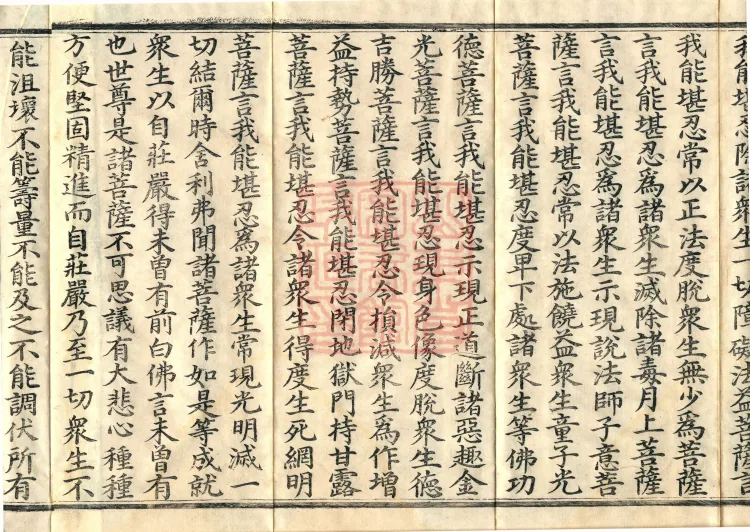 我能堪忍除諸衆生一切障礙法益菩薩言
我能堪忍常以正法度脫衆生無少爲菩薩
言我能堪忍爲諸衆生滅除諸毒月上菩薩
言我能堪忍爲諸衆生示現說法師子意菩
薩言我能堪忍常以法施饒益衆生童子光
菩薩言我能堪忍度卑下處諸衆生等佛功
德菩薩言我能堪忍示現正道斷諸惡趣金
光菩薩言我能堪忍現身色像度脫衆生德
吉勝菩薩言我能堪忍令損減衆生爲作增
益持勢菩薩言我能堪忍閉地獄門持甘露
菩薩言我能堪忍令諸衆生得度生死網明
菩薩言我能堪忍爲諸衆生常現光明滅一
切結爾時舍利弗聞諸菩薩作如是等成就
衆生以自莊嚴得未曾有前白佛言未曾有
也世尊是諸菩薩不可思議有大悲心種種
方便堅固精進而自莊嚴乃至一切衆生不
能沮壞不能籌量不能及之不能調伏所有